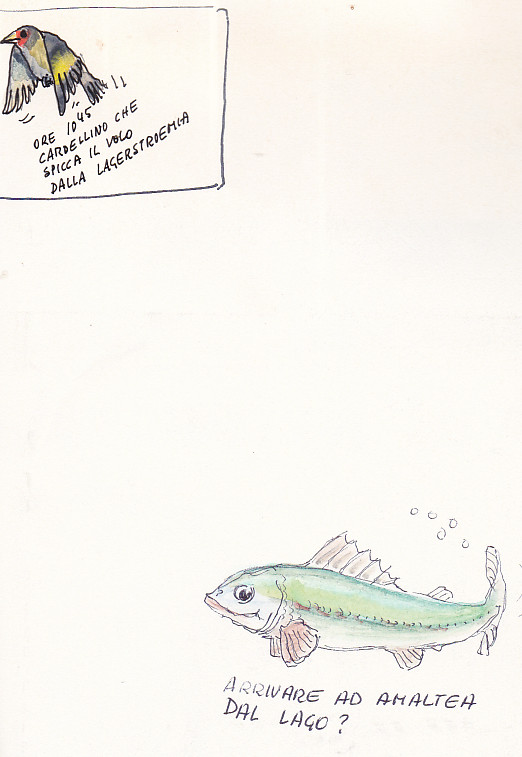 ORE 10 45
CARDELLINO CHE
SPICCA IL VOLO
DALLA LAGERSTROEMIA
ARRIVARE AD AMALTEA
DAL LAGO?